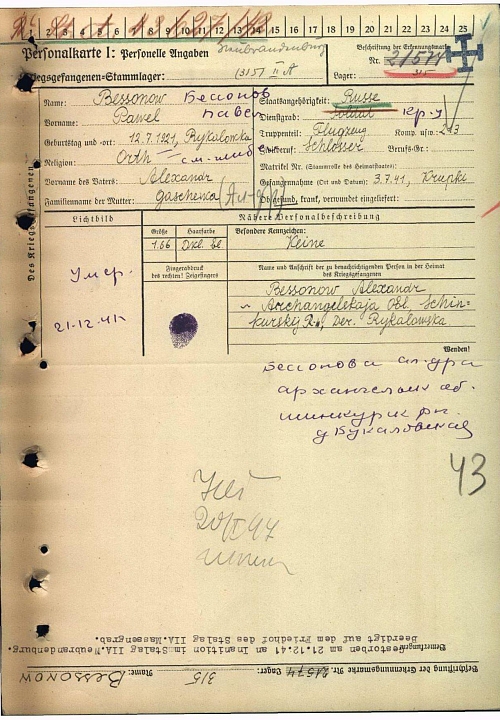 2 3 4 5 6 7 8 9 10 11 12 13 14 15 16 17 18 19 20 21 22 23 24 25
Personalkarte I: Personelle Angaben
Neubrandenburg
Beschriftung der Erkennungsmarke
Kriegsgefangenen-Stammlager: (315) II A
Nr. 21574
Lager: 315
Des Kriegsgefangenen
Name: Bessonow Бессонов
Vorname: Pawel Павел
Geburtstag und -ort: 12.7.1921, Rykalowka
Religion: Orth
Vorname des Vaters: Alexandr
Familienname der Mutter:
Staatsangehörigkeit: Russe
Dienstgrad: Soldat кр-ц
Truppenteil: Flugzeug Komp. usw.: 213
Zivilberuf: Schlosser Berufs-Gr.:
Matrikel Nr. (Stammrolle des Heimatstaates):
Gefangennahme (Ort und Datum): 3.7.41, Krupki
Ob gesund, krank, verwundet eingeliefert:
Lichtbild
Nähere Personalbeschreibung
Größe Haarfarbe Besondere Kennzeichen:
1.66 Dkl. Keine
Fingerabdruck des rechten! Zeigefingers
Name und Anschrift der zu benachrichtigenden Person in der Heimat des Kriegsgefangenen
Умер.
21-12-41
Bessonow Alexandr
Archangelskaja Obl. Schin-
kurskij R., Der. Rykalowska
Wenden!
Бессонова
архангельск об.
шинкурск рн.
43
Bemerkungen:
Gestorben am 21.12.41 an Inanition im Stalag IIA. Neubrandenburg.
Beerdigt auf dem Friedhof des Stalag IIA. Massengrab.
Beschriftung der Erkennungsmarke Nr. 21574 Lager: 315 Name: Bessonow